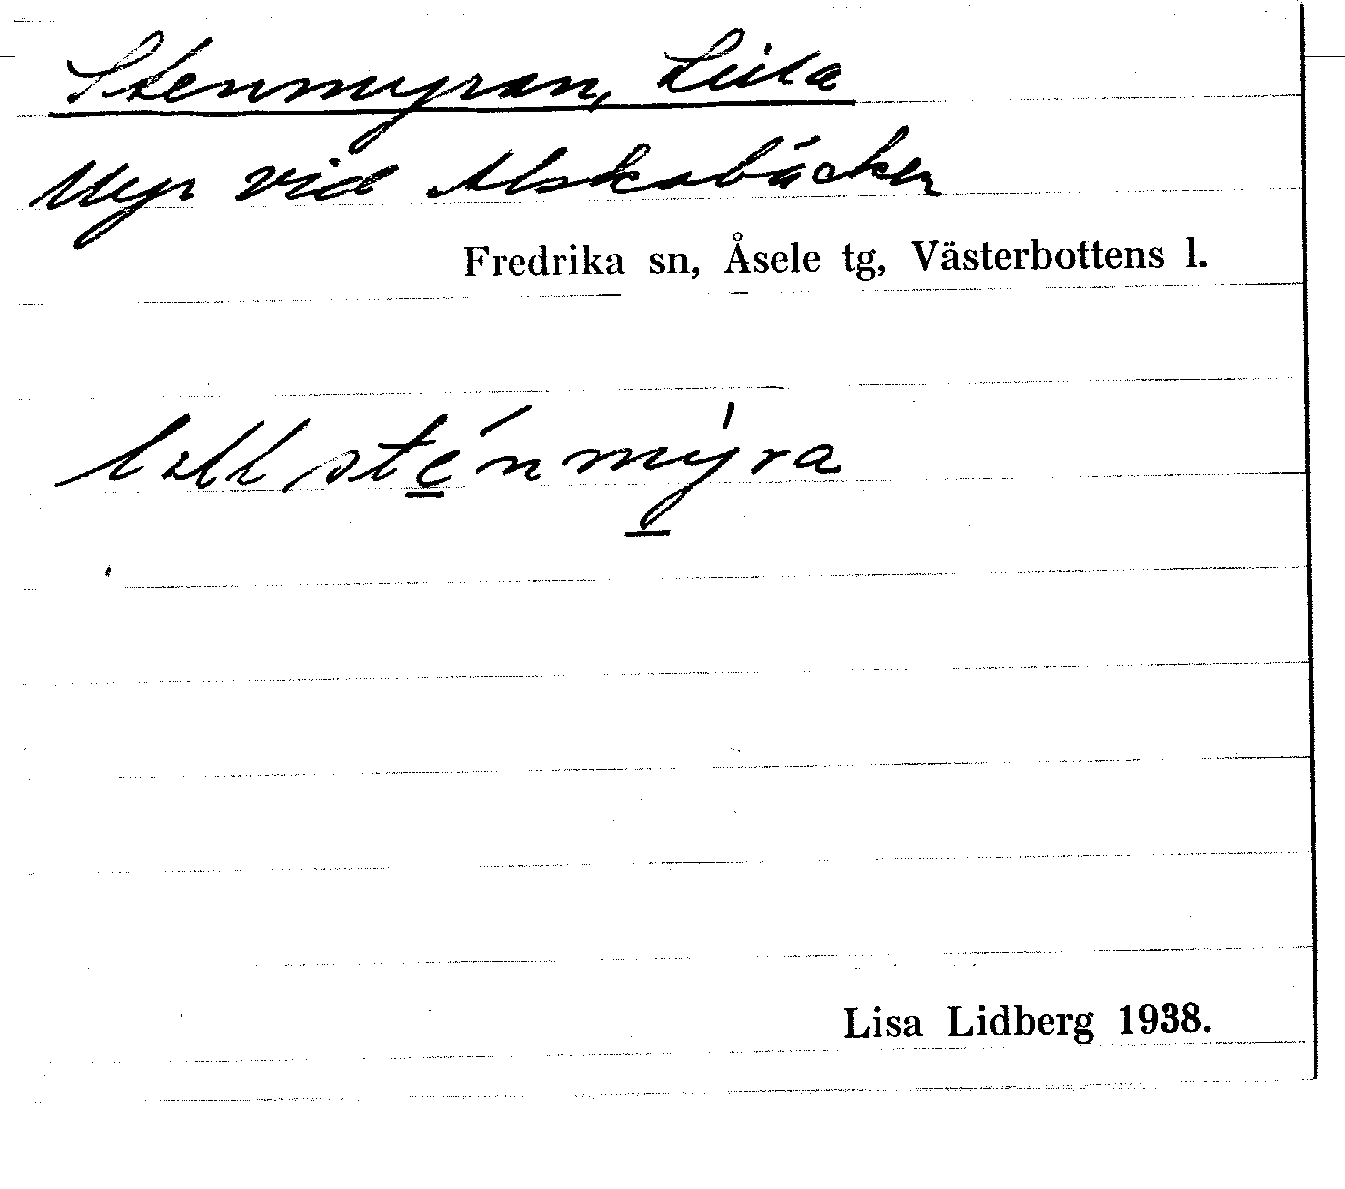 Stenmyran, Lilla
Myr vid Alskabäcken
Fredrika sn, Åsele tg, Västerbottens l.
lıllsténmýra
Lisa Lidberg 1938.